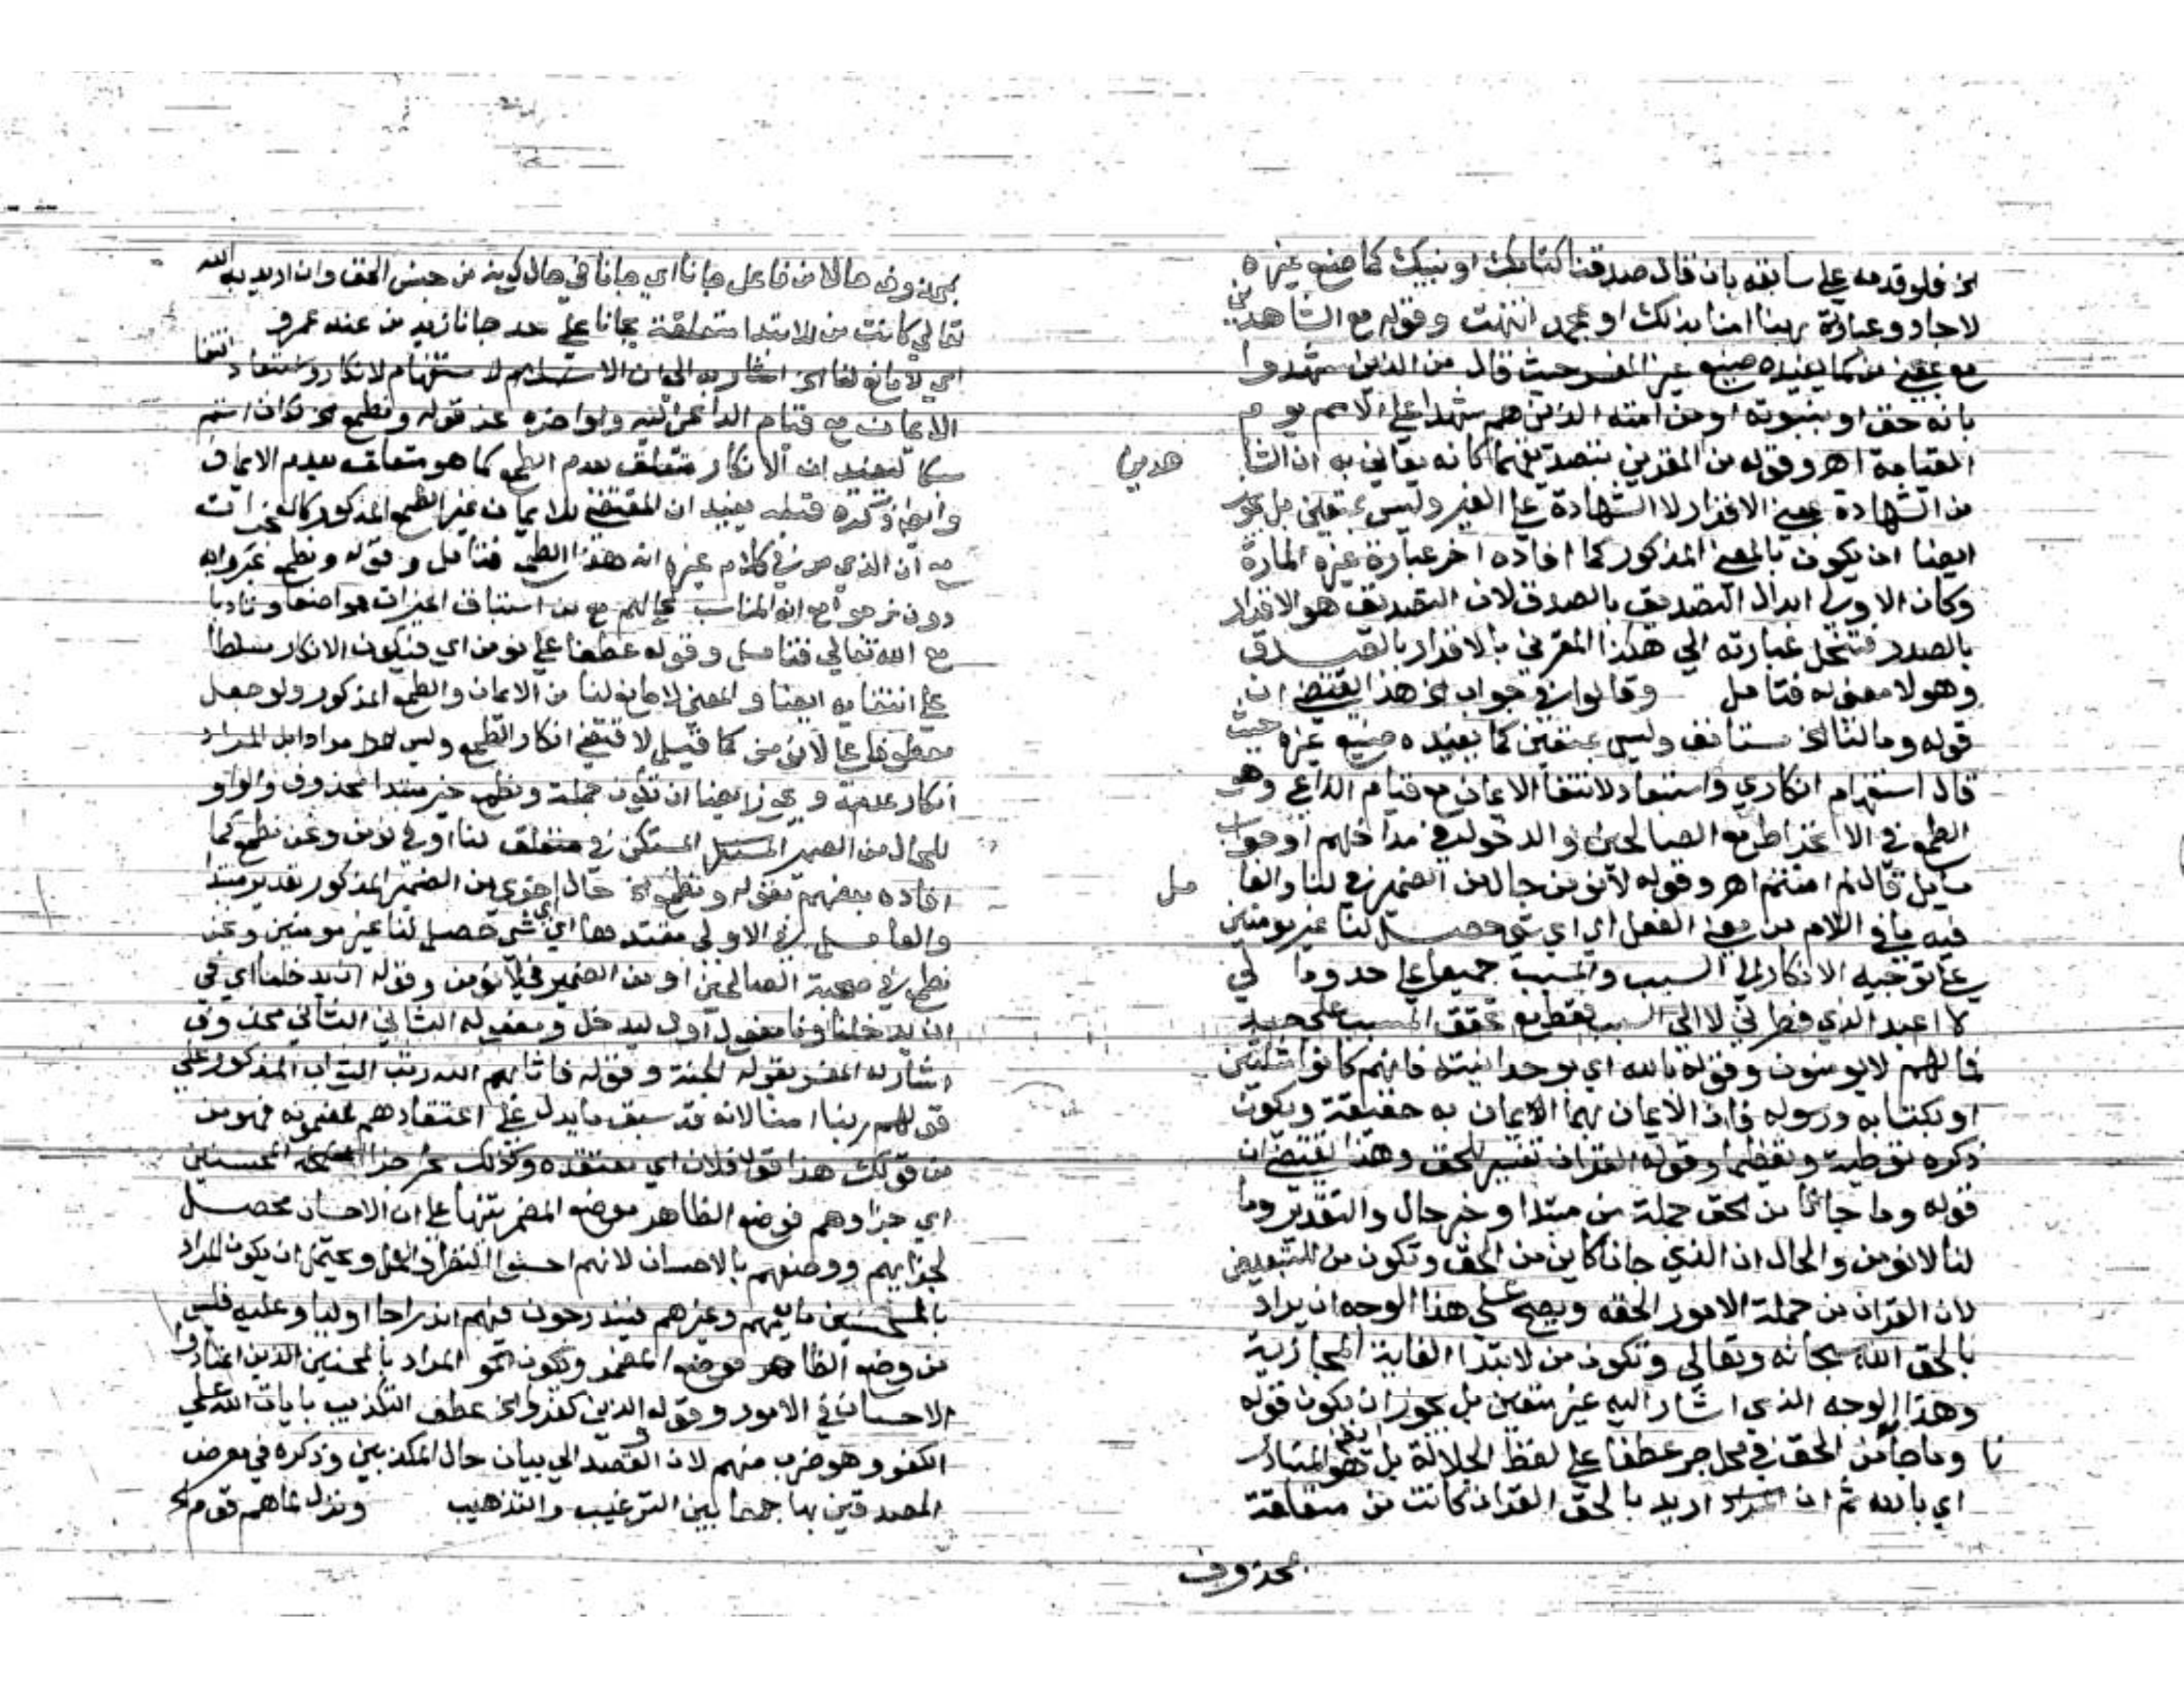 الخ فلو قدمه على سابقه بان قال صدقنا كتابك او نبيك كما صنع غيره
لاجاد وعبارة ربنا امنا بذلك او بمحمد انتهت وقوله مع الشاهدين
مع بمعنى من كما يفيده صنيع غير المفسر حيث قال من الذين شهدوا
بانه حق او بنبوته او من امته الذين هم شهداء على الامم يوم
القيامة اهـ وقوله من المقرين بتصديقهما كانه يعاني به ان الشا
هدين
من الشهادة بمعنى الاقرار لا الشهادة على الغير وليس بمتعين بل يجوز
ايضا ان يكون بالمعنى المذكور كما افاده اخر عبارة غيره المارة
وكان الاولى ابدال التصديق بالصدق لان التصديق هو الاقرار
بالصدق فتنحل عبارته الى هكذا المقرين بالاقرار بالصدق
وهو لا معنى له فتامل وقالوا في جواب الخ هذا يقتضي ان
قوله وما لنا الخ مستانف وليس بمتعين كما يفيده صنيع غيره حيث
قال استفهام انكاري واستبعاد لانتفا الايمان مع قيام الداعي وهو
الطمع في الانخراط مع الصالحين والدخول في مداخلهم او جواب
سايل قال لم امنتم اهـ وقوله لا نؤمن حال من الضمير في لنا والعا
مل
فيه ما في اللام من معنى الفعل اي اي شي حصل لنا غير مومنين
على توجيه الانكار الى السبب والمسبب جميعا على حد وما لي
لا اعبد الذي فطرني لا الى السبب فقط مع تحقق المسبب على حد
فما لهم لا يومنون وقوله بالله اي بوحدانيته فانهم كانوا مثلثين
او بكتابه ورسوله فان الايمان بهما الايمان به حقيقة ويكون
ذكره توطية وتعظيما وقوله القران تفسير للحق وهذا يقتضي ان
قوله وما جانا من الحق جملة من مبتدا وخبر حال والتقدير وما
لنا لا نؤمن والحال ان الذي جانا كاين من الحق وتكون من للتبعيض
لان القران من جملة الامور الحقه ويصح على هذا الوجه ان يراد
بالحق الله سبحانه وتعالى وتكون من لابتدا الغاية المجازية
وهذا الوجه الذي اشار اليه غير متعين بل يجوز ان يكون قوله
وما جانا من الحق في محل جر عطفا على لفظ الجلالة بل هو المتبادر
اي بالله ثم ان اريد بالحق القران كانت من متعلقة
بمحذوف
بمحذوف حالا من فاعل جانا اي جانا في حال كونه من جنس الحق وان اريد به الله
تعالى كانت من للابتدا متعلقة بجانا على حد جانا زيد من عند عمرو
اي لا مانع لنا الخ اشار به الى ان الاستفهام لانكار واستبعاد انتفا
الايمان مع قيام الداعي اليه ولو اخره عند قوله ونطمع الخ لكان انسب
ليفيد ان الانكار متعلق بعدم الطمع كما هو متعلق بعدم الايمان
وايضا ذكره قبله يفيد ان المقتضي للايمان غير الطمع المذكور
مع ان الذي مر في كلام غيره انه هذا الطمع فتامل وقوله ونطمع عبروا به
دون نرجو مع انه المناسب لحالهم من استيناف الخيرات تواضعا وتادبا
مع الله تعالى فتامل وقوله عطفا على نومن اي فيكون الانكار مسلطا
على انتفايه ايضا والمعنى لا مانع لنا من الايمان والطمع المذكور ولو جعل
معطوفا على لا نؤمن كما قيل لاقتضى انكار الطمع وليس مرادا بل المراد
انكار عدمه ويجوز ايضا ان تكون جملة ونطمع خبر مبتدا محذوف والواو
للحال من الضمير المستكن في متعلق لنا او في نؤمن ونحن نطمع كما
افاده بعضهم بقوله ونطمع الخ حال اخرى من الضمير المذكور بتقدير مبتدا
والعامل في الاولى مقيد بها اي اي شي حصل لنا غير مومنين ونحن
نطمع في صحبة الصالحين او من الضمير في لا نؤمن وقوله ان يدخلنا اي في
ان يدخلنا ونا مفعول اول ليدخل ومفعوله الثاني محذوف
اشار له المفسر بقوله الجنة وقوله فاثابهم الله رتب الثواب المذكور على
قولهم ربنا امنا لانه قد سبق ما يدل على اعتقادهم لمضمونه فهو من
من قولك هذا قول فلان اي معتقده وكذلك جزا المحسنين
اي جزاوهم فوضع الظاهر موضع المضمر تنبيها على ان الاحسان محصل
لجزايهم ووصفهم بالاحسان لانهم احسنوا النظر والعمل ويحتمل ان يكون المراد
بالمحسنين ما يعمهم وغيرهم فيندرجون فيهم اندراجا اوليا وعليه فليس
من وضع الظاهر موضع المضمر ويكون المراد بالمحسنين الذين اعتادوا
الاحسان في الامور وقوله والذين كفروا الخ عطف التكذيب بايات الله على
الكفر وهو ضرب منهم لان القصد الى بيان حال المكذبين وذكره في معرض
المصدقين بها جمعا بين الترغيب والترهيب ونزل لما هم قوم الخ